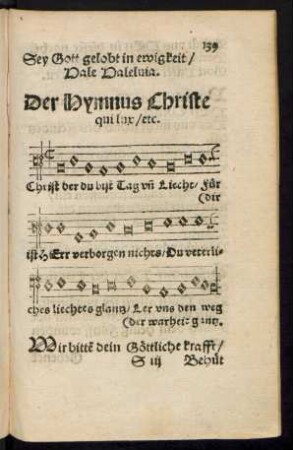 139
Sey Gott gelobt in ewigkeit /
Vale Valeluia.
Der Hymnus Christe
qui lux / etc.
Christ der du bist Tag vñ Liecht / Für
(dir
ist HErr verborgen nichts / Du veterli-
ches liechtes glantz / Ler vns den weg
(der warheit gantz.
Wir bittẽ dein Göttliche krafft /
S iij Behüt